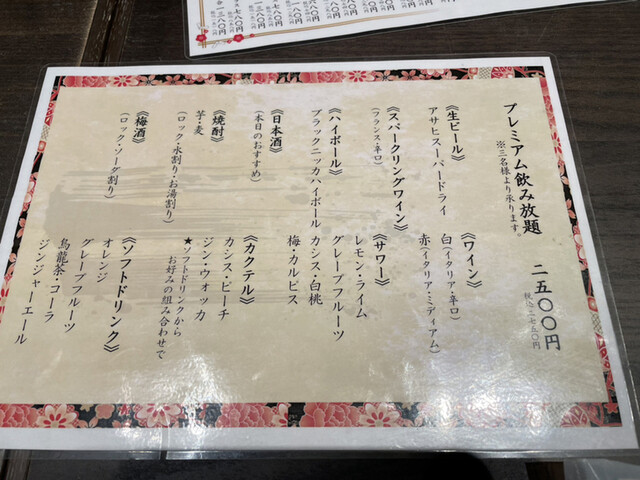 プレミアム飲み放題 二五〇〇円
※三名様より承ります。 税込二七五〇円
《生ビール》
アサヒスーパードライ
《スパークリングワイン》
(フランス・辛口)
《ハイボール》
ブラックニッカハイボール
《日本酒》
(本日のおすすめ)
《焼酎》
芋・麦
(ロック・水割り・お湯割り)
《梅酒》
(ロック・ソーダ割り)
《ワイン》
白(イタリア・辛口)
赤(イタリア・ミディアム)
《サワー》
レモン・ライム
グレープフルーツ
カシス・白桃
梅・カルピス
《カクテル》
カシス・ピーチ
ジン・ウォッカ
★ソフトドリンクから
お好みの組み合わせで
《ソフトドリンク》
オレンジ
グレープフルーツ
烏龍茶・コーラ
ジンジャーエール